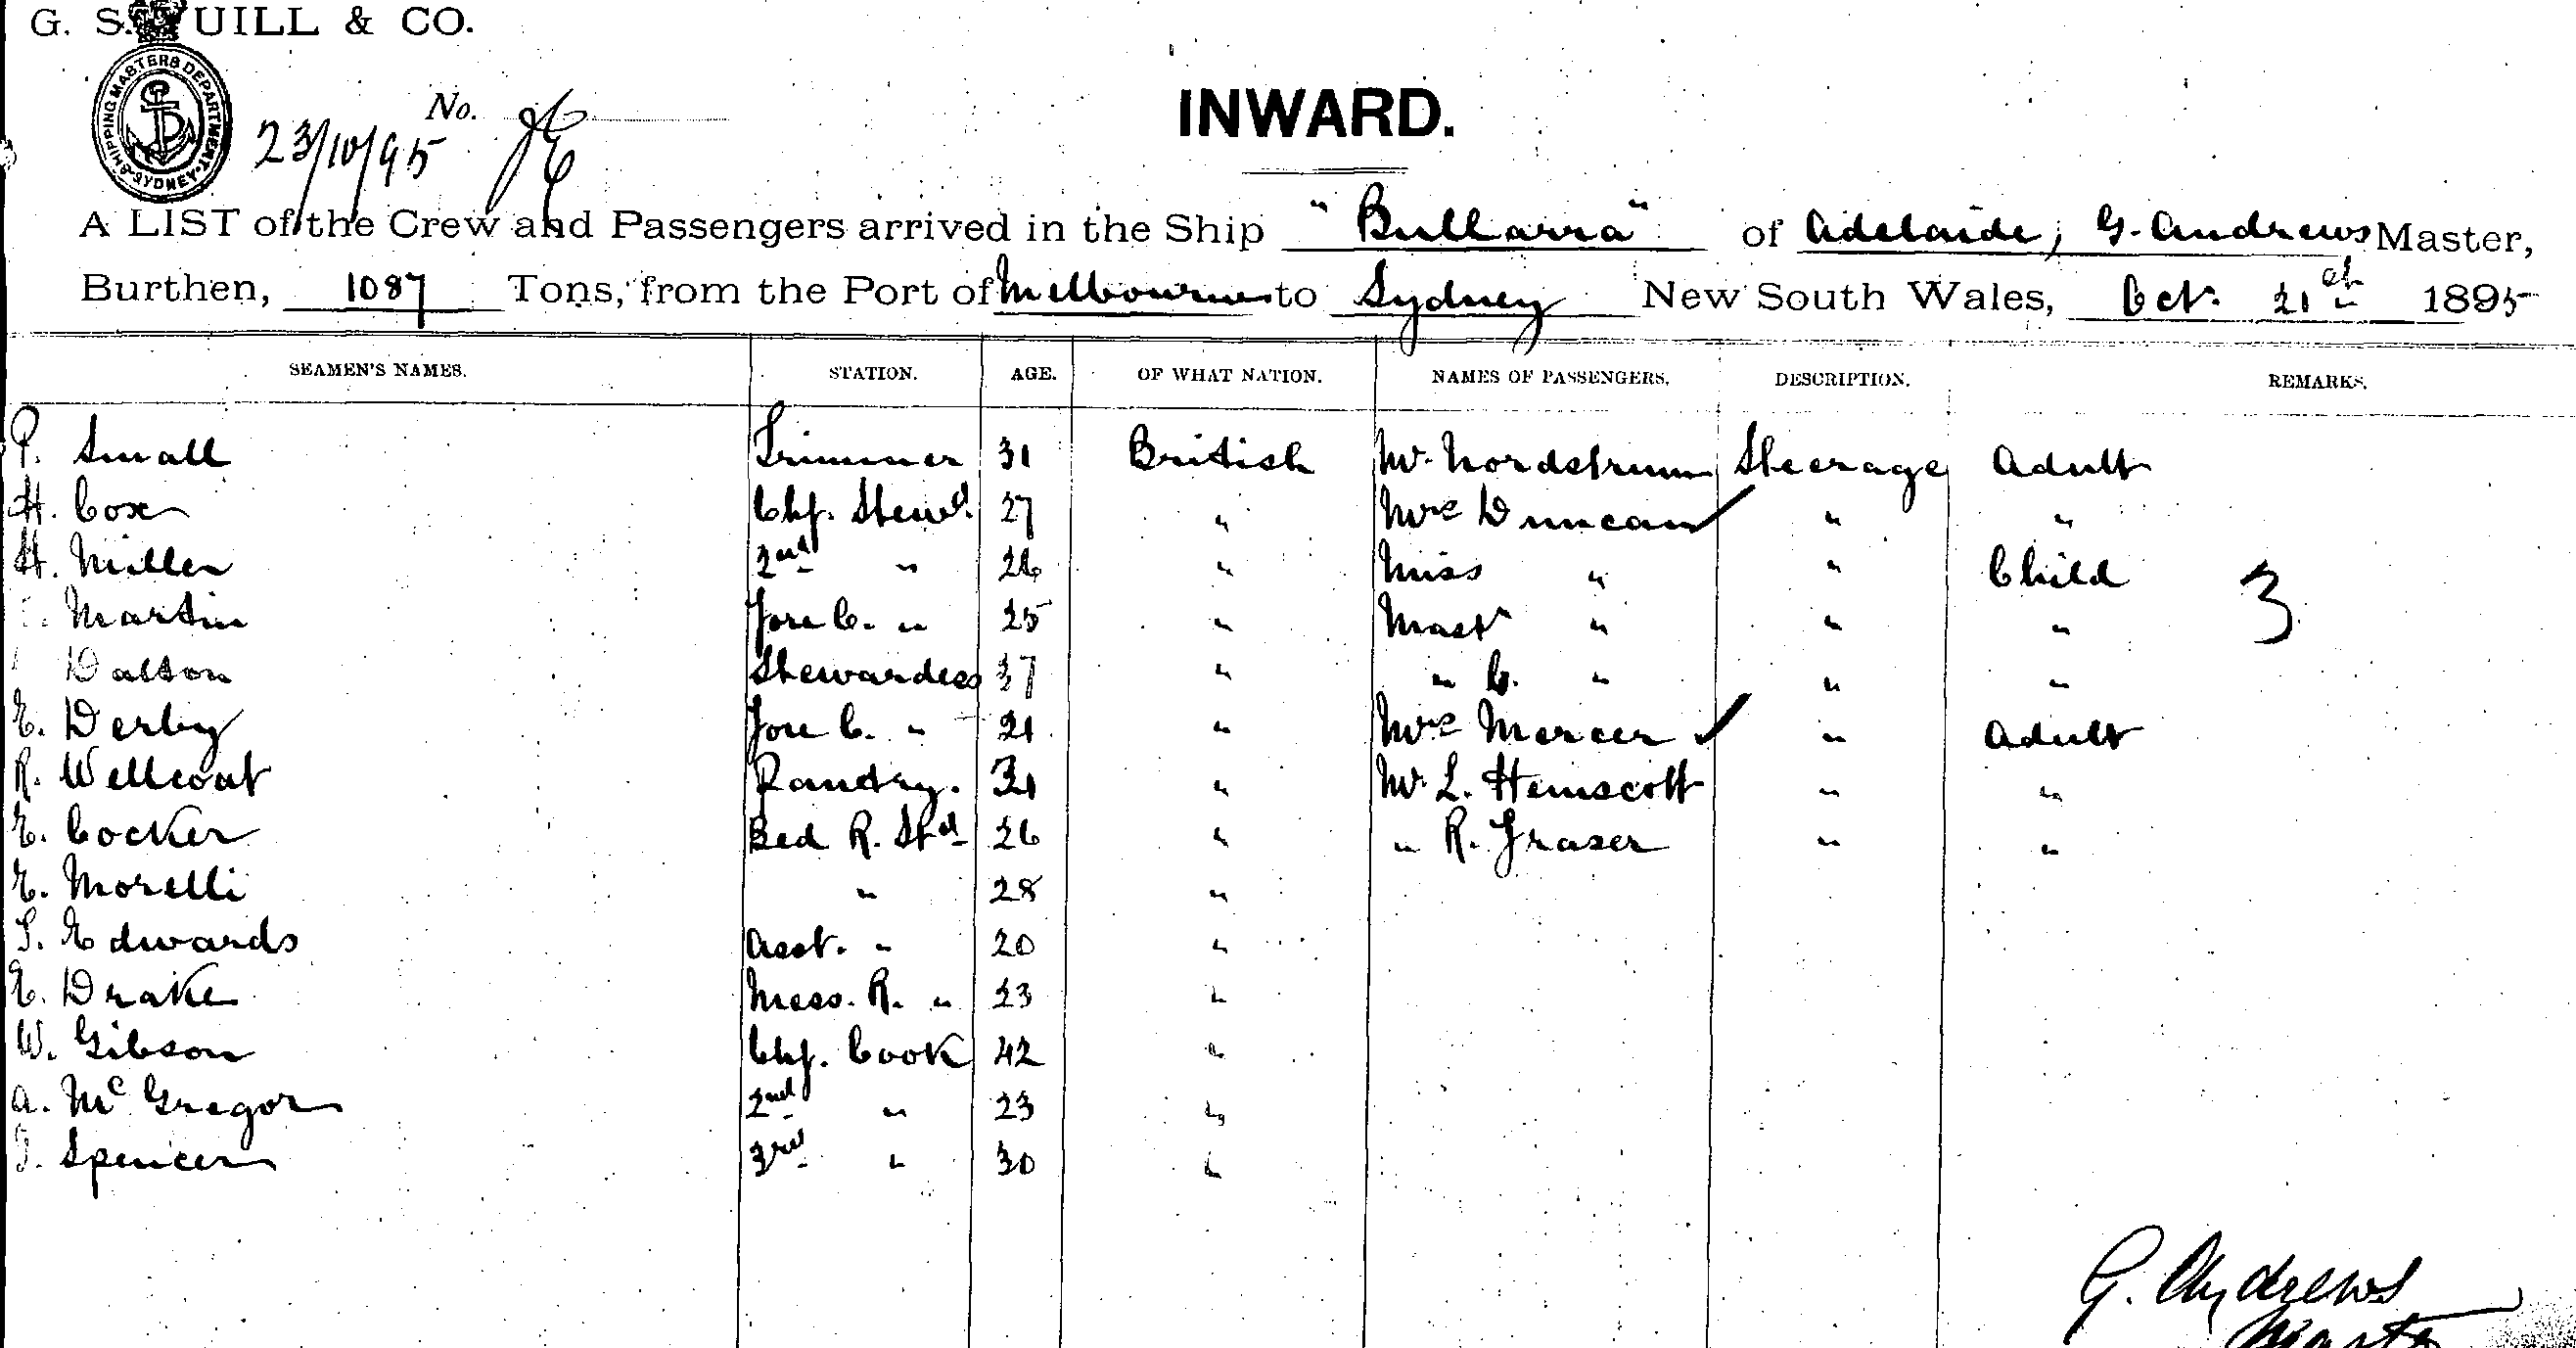 G. S. UILL & CO.
SHIPPING MASTERS DEPARTMENT SYDNEY
No.
23/10/95
INWARD.
A LIST of the Crew and Passengers arrived in the Ship "Bullarra" of Adelaide, G. Andrews Master,
Burthen, 1087 Tons, from the Port of Melbourne to Sydney New South Wales, Oct. 21st 1895
SEAMEN'S NAMES. STATION. AGE. OF WHAT NATION. NAMES OF PASSENGERS. DESCRIPTION. REMARKS.
P. Small Trimmer 31 British Mr. Nordstrum Steerage Adult
H. Cox Chf. Stewd. 27 " Mrs Duncan " "
H. Miller 2nd " 26 " Miss " " Child 3
Martin Fore C. " 25 " Mast " " "
Dalton Stewardess 37 " " C. " " "
E. Derby Fore C. " 21 " Mrs Mercer " Adult
R. Wellcoat Pantry. " Mr. L. Hemscott " "
E. Cocker Bed R. Std 26 " " R. Fraser " "
E. Morelli " 28 "
S. Edwards Asst. " 20 "
E. Drake Mess. R. " 23 "
W. Gibson Chf. Cook 42 "
A. McGregor 2nd " 23 "
Spencer 3rd " 30 "
G. Andrews
Master